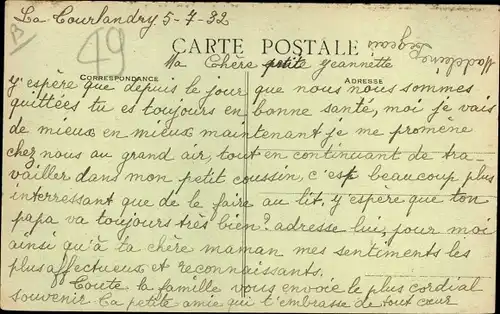 La Courlandry 5-7-32
49
CARTE POSTALE
Ma Chère petite Jeannette
Madeleine
CORRESPONDANCE
ADRESSE
y'espère que depuis le jour que nous nous sommes
quittées tu es toujours en bonne santé, moi je vais
de mieux en mieux maintenant je me promène
chez nous au grand air, tout en continuant de tra-
vailler dans mon petit coussin, c'est beaucoup plus
interressant que de le faire au lit, y'espère que ton
papa va toujours très bien? adresse lui, pour moi
ainsi qu'à ta chère maman mes sentiments les
plus affectueux et reconnaissants.
Toute la famille vous envoie le plus cordial
souvenir. Ta petite amie qui t'embrasse de tout cœur